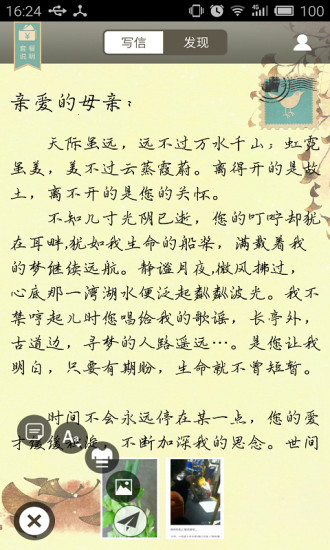 16:24
4G
100
套餐
说明
写信
发现
亲爱的母亲：
天际虽远，远不过万水千山；虹霓
虽美，美不过云蒸霞蔚。离得开的是故
土，离不开的是您的关怀。
不知几寸光阴已逝，您的叮咛却犹
在耳畔，犹如我生命的船桨，满载着我
的梦继续远航。静谧月夜，微风拂过，
心底那一湾湖水便泛起粼粼波光。我不
禁哼起儿时您唱给我的歌谣，长亭外，
古道边，寻梦的人路遥远…。是您让我
明白，只要有期盼，生命就不曾短暂。
时间不会永远停在某一点，您的爱
才 ，不断加深我的思念。世间
A